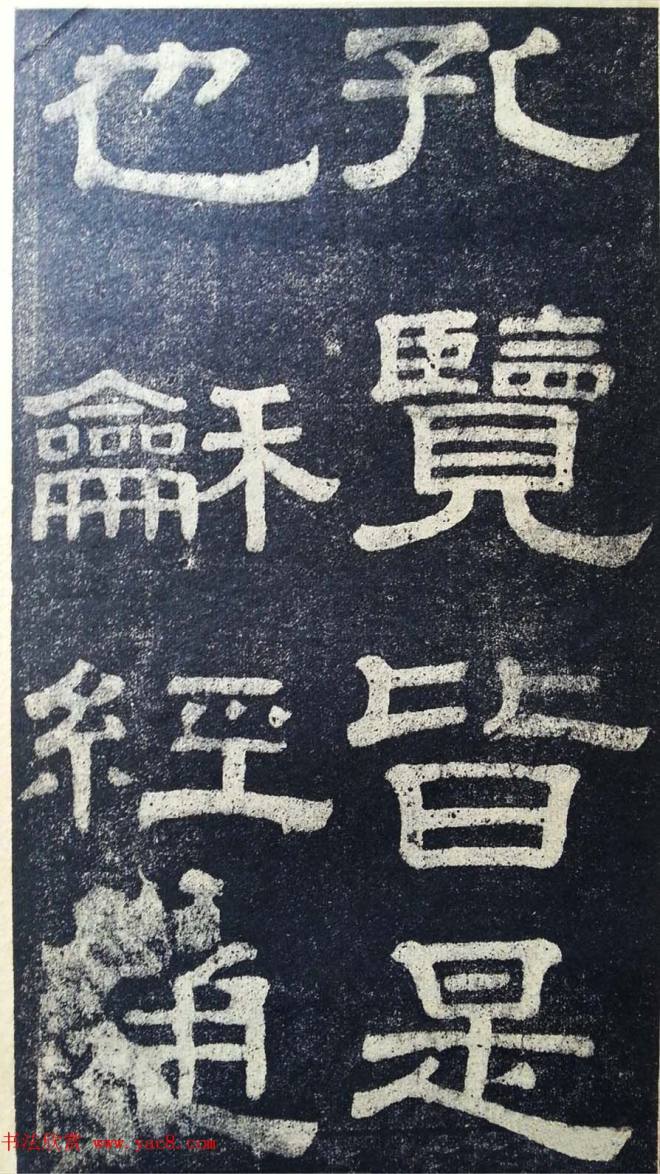 孔覽皆是
也龢經通
书法欣赏 www.yac8.com